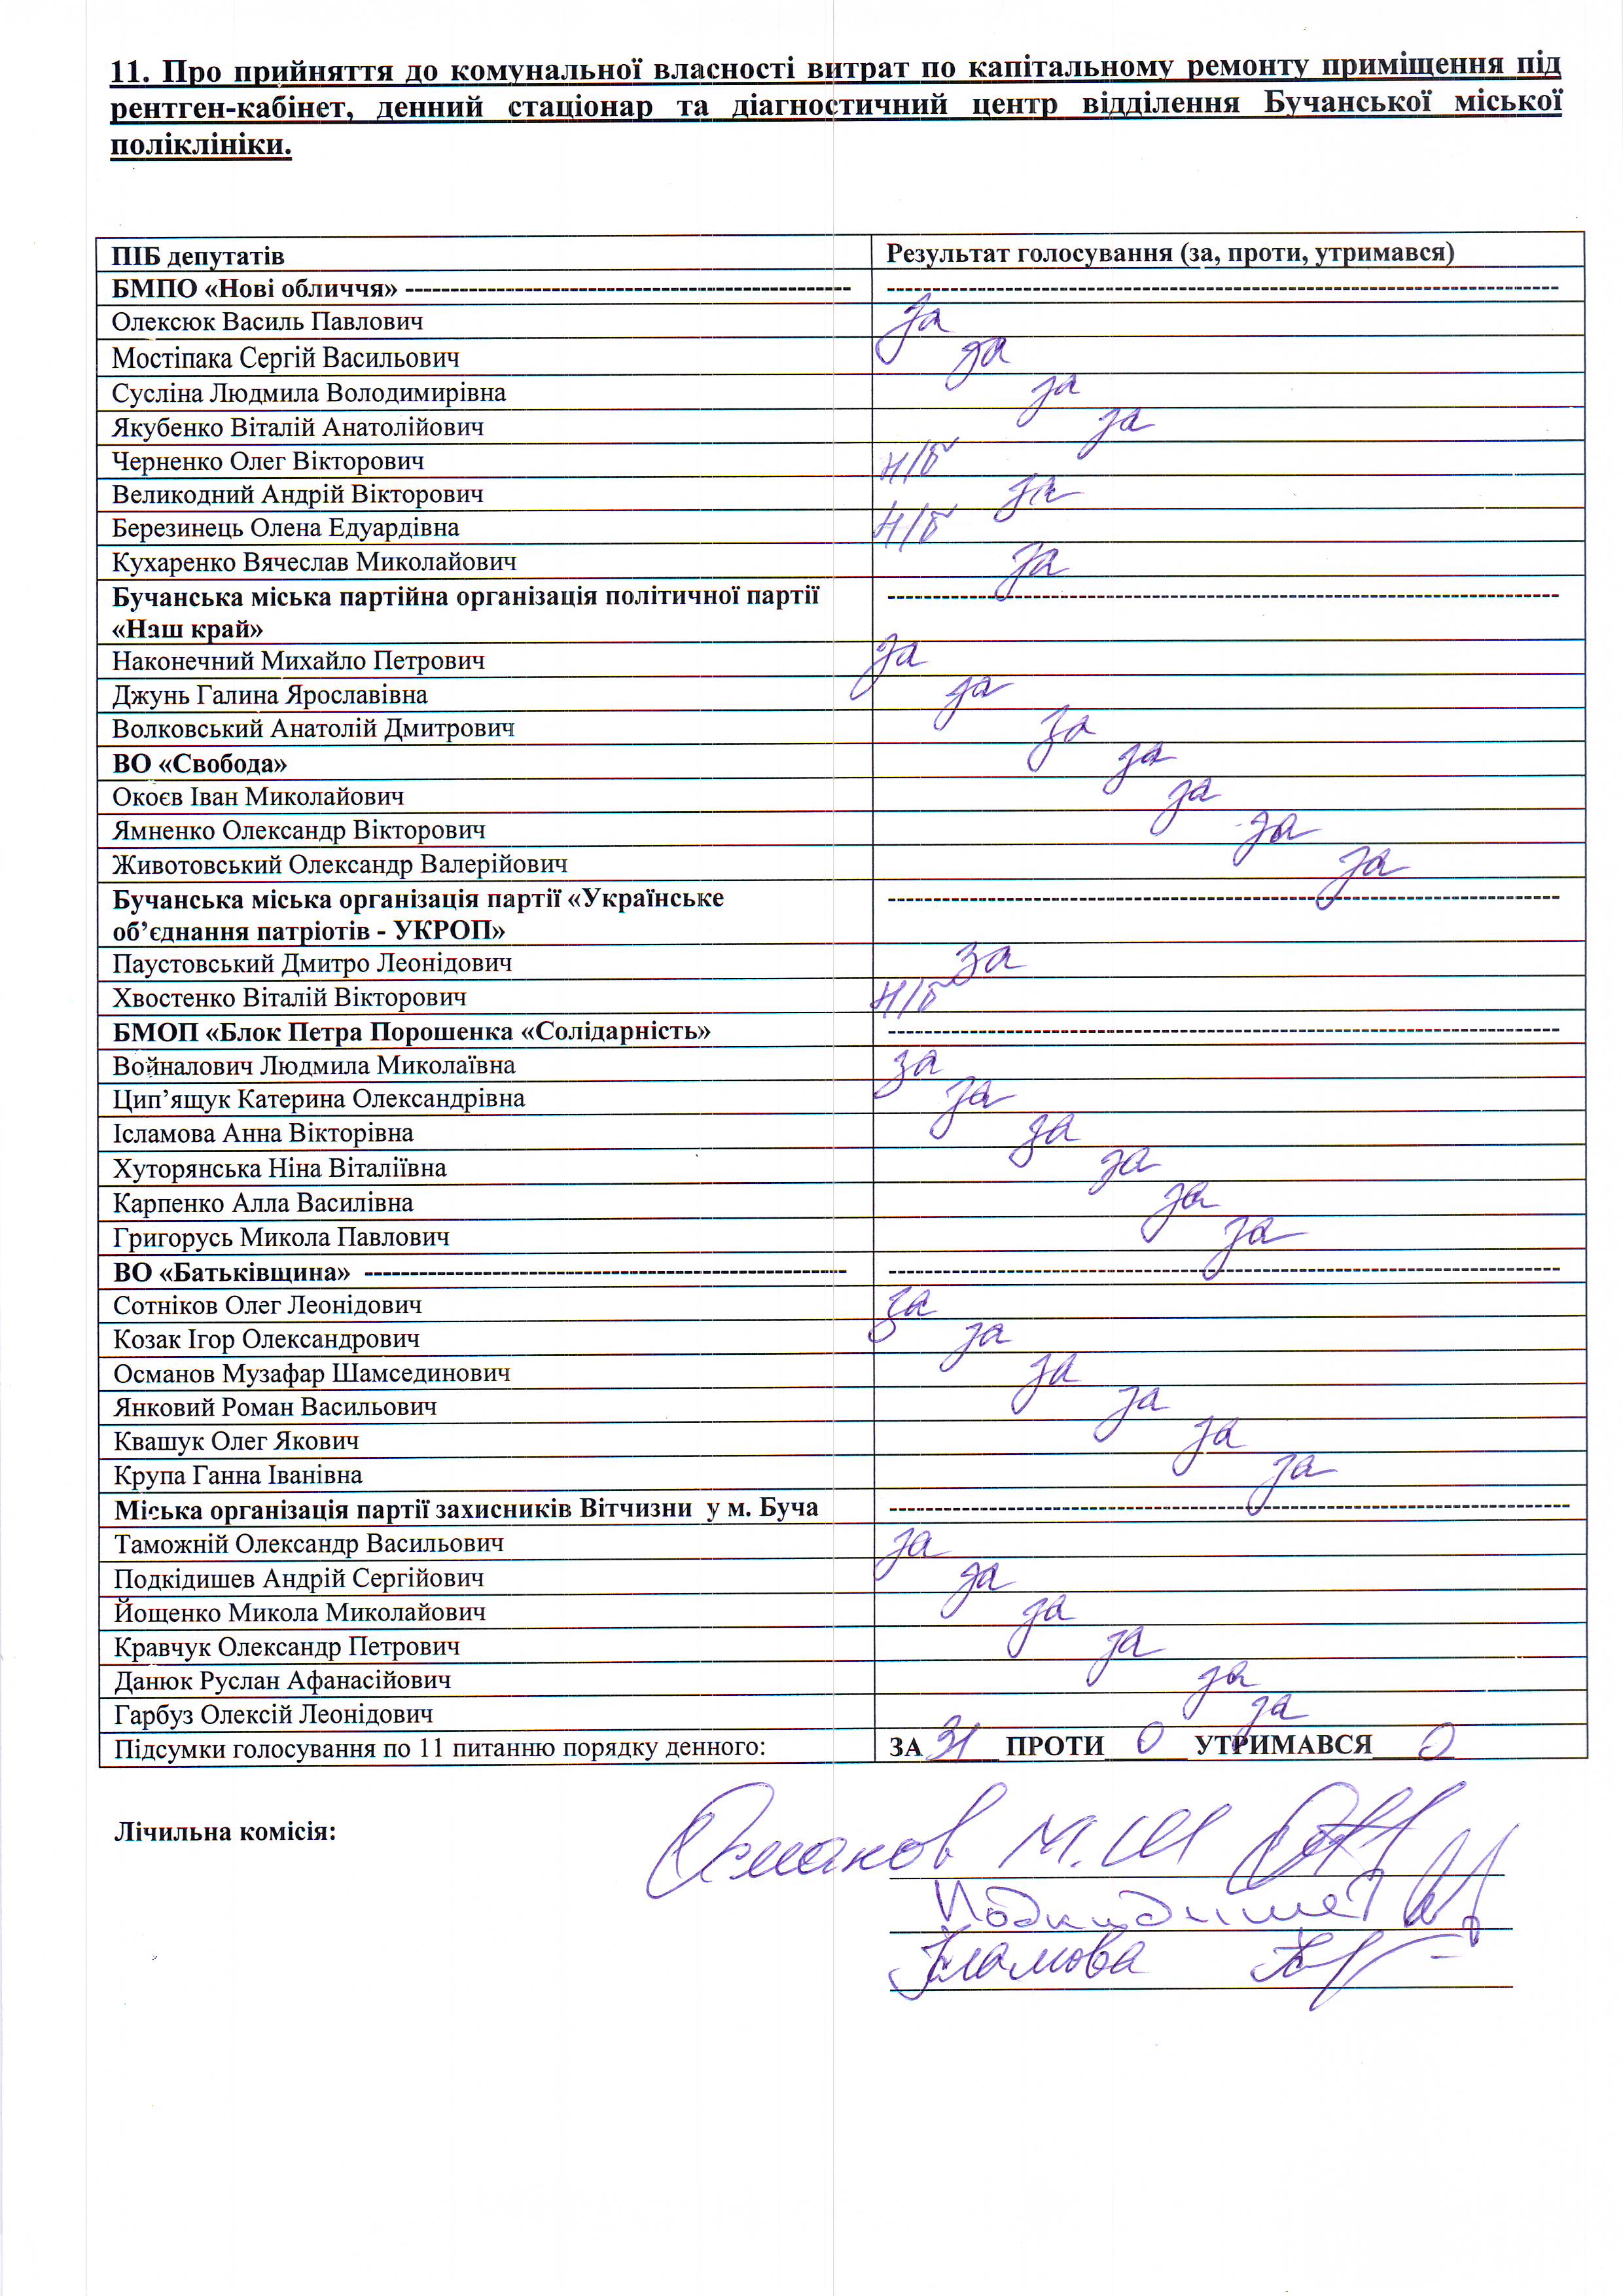 11. Про прийняття до комунальної власності витрат по капітальному ремонту приміщення під
рентген-кабінет, денний стаціонар та діагностичний центр відділення Бучанської міської
поліклініки.
ПІБ депутатів Результат голосування (за, проти, утримався)
БМПО «Нові обличчя» ------------------------------------------------- --------------------------------------------------------------------------
Олексюк Василь Павлович за
Мостіпака Сергій Васильович за
Сусліна Людмила Володимирівна за
Якубенко Віталій Анатолійович за
Черненко Олег Вікторович н/б
Великодний Андрій Вікторович за
Березинець Олена Едуардівна н/б
Кухаренко Вячеслав Миколайович за
Бучанська міська партійна організація політичної партії --------------------------------------------------------------------------
«Наш край»
Наконечний Михайло Петрович за
Джунь Галина Ярославівна за
Волковський Анатолій Дмитрович за
ВО «Свобода» за
Окоєв Іван Миколайович за
Ямненко Олександр Вікторович за
Животовський Олександр Валерійович за
Бучанська міська організація партії «Українське --------------------------------------------------------------------------
об’єднання патріотів - УКРОП»
Паустовський Дмитро Леонідович за
Хвостенко Віталій Вікторович н/б
БМОП «Блок Петра Порошенка «Солідарність» --------------------------------------------------------------------------
Войналович Людмила Миколаївна за
Цип’ящук Катерина Олександрівна за
Ісламова Анна Вікторівна за
Хуторянська Ніна Віталіївна за
Карпенко Алла Василівна за
Григорусь Микола Павлович за
ВО «Батьківщина» ----------------------------------------------------- --------------------------------------------------------------------------
Сотніков Олег Леонідович за
Козак Ігор Олександрович за
Османов Музафар Шамсединович за
Янковий Роман Васильович за
Квашук Олег Якович за
Крупа Ганна Іванівна за
Міська організація партії захисників Вітчизни у м. Буча ---------------------------------------------------------------------------
Таможній Олександр Васильович за
Подкідишев Андрій Сергійович за
Йощенко Микола Миколайович за
Кравчук Олександр Петрович за
Данюк Руслан Афанасійович за
Гарбуз Олексій Леонідович за
Підсумки голосування по 11 питанню порядку денного: ЗА 31 ПРОТИ 0 УТРИМАВСЯ 0
Лічильна комісія: Османов М.Ш
Ісламова